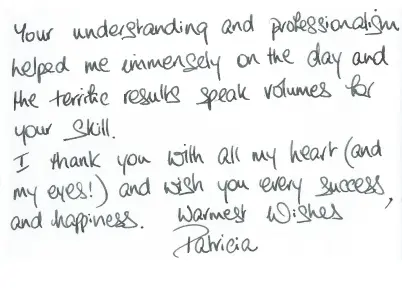 Your understanding and professionalism
helped me immensely on the day and
the terrific results speak volumes for
your skill.
I thank you with all my heart (and
my eyes!) and wish you every success,
and happiness. Warmest Wishes
Patricia